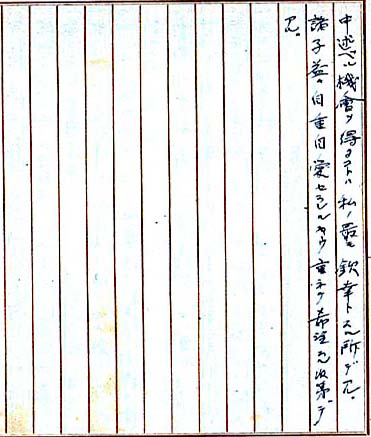 中述ベル機會ヲ得タコトハ私ノ最モ欽幸トスル所デアル。
諸子益々自重自愛セラレルヤウ重ネテ希望スル次第デ
アル。